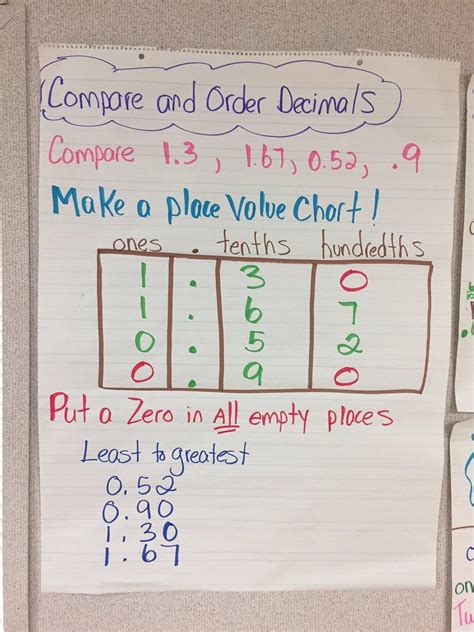 Compare and Order Decimals
Compare 1.3, 1.67, 0.52, .9
Make a place Value Chart!
ones . tenths hundredths
1 . 3 0
1 . 6 7
0 . 5 2
0 . 9 0
Put a Zero in All empty places
Least to greatest
0.52
0.90
1.30
1.67
on
Tu